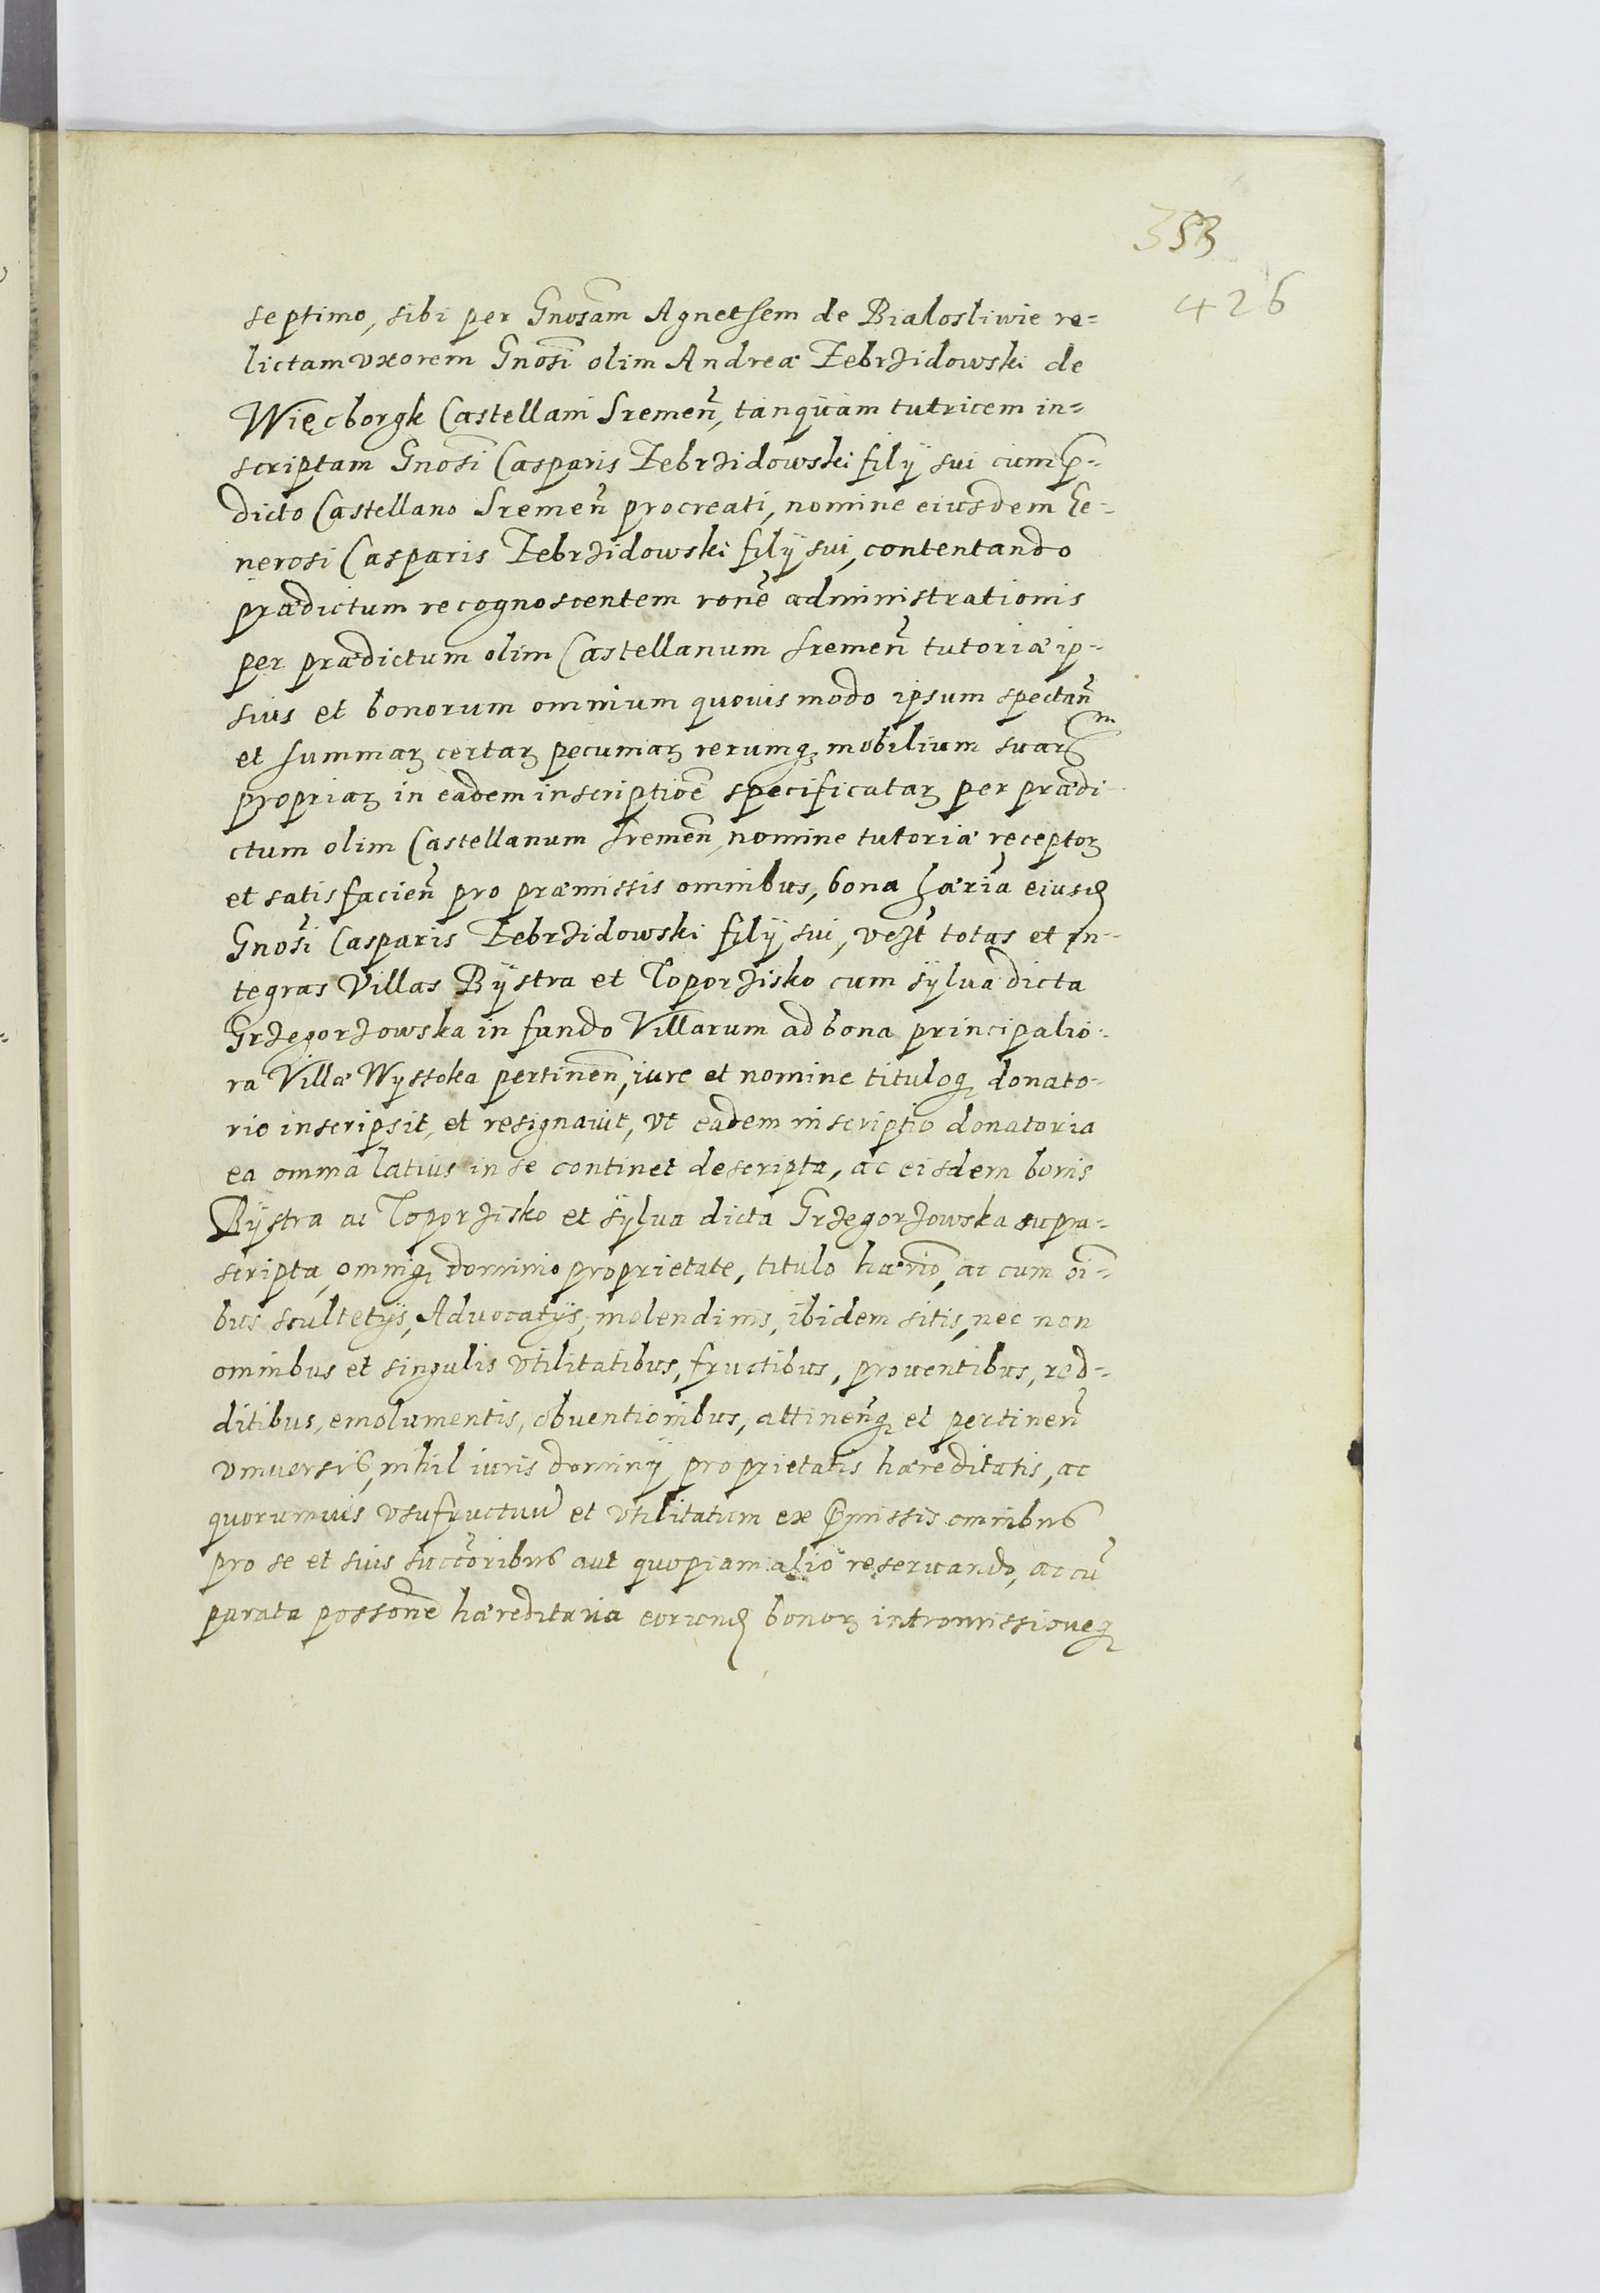 353
426
septimo, sibi per Gnosam Agnetsem de Bialosliwie re=
lictam vxorem Gnosi olim Andreæ Zebrzidowski de
Więcborgk Castellani Sremen̄, tanquam tutricem in=
scriptam Gnosi Casparis Zebrzidowski filÿ sui cum p̄=
dicto Castellano Sremen̄ procreati, nomine eiusdem Ge=
nerosi Casparis Zebrzidowski filÿ sui, contentando
prædictum recognoscentem ronē administrationis
per prædictum olim Castellanum Sremen̄ tutoriæ ip=
sius et bonorum omnium quouis modo ipsum spectan̄
et summaꝝ certaꝝ pecuniaꝝ rerumqꝫ mobilium suarum
propriaꝝ in eadem inscriptioē specificataꝝ per prædi
ctum olim Castellanum Sremen̄, nomine tutoriæ receptoꝝ
et satisfacien̄ pro præmissis omnibus, bona hæria eiusd
Gnosi Casparis Zebrzidowski filÿ sui, vezt totas et in=
tegras Villas Bÿstra et Toporzisko cum sylua dicta
Grzegorzowska in fundo Villarum ad bona principalio=
ra Villæ Wyssoka pertinen̄, iure et nomine tituloqꝫ donato=
rio inscripsit, et resignauit, vt eadem inscriptio donatoria
ea omnia latius in se continet descripta, ac eisdem bonis
Bÿstra ac Toporzisko et sylua dicta Grzegorzowska supra=
scripta, omniqꝫ dominio proprietate, titulo hærio, ac cum oi=
bus scultetÿs, Aduocatÿs, molendinis, ibidem sitis, nec non
omnibus et singulis vtilitatibus, fructibus, prouentibus, red=
ditibus, emolumentis, obuentionibus, attinen̄qꝫ et pertinen̄
vniuersis, nihil iuris dominÿ proprietatis hæreditatis, ac
quorumuis vsufructuū et vtilitatum ex p̄missis omnibus
pro se et suis succ̄oribus aut quopiam alio reseruando, ac cū
parata possonē hæreditaria eorund bonoꝝ intromissioneqꝫ